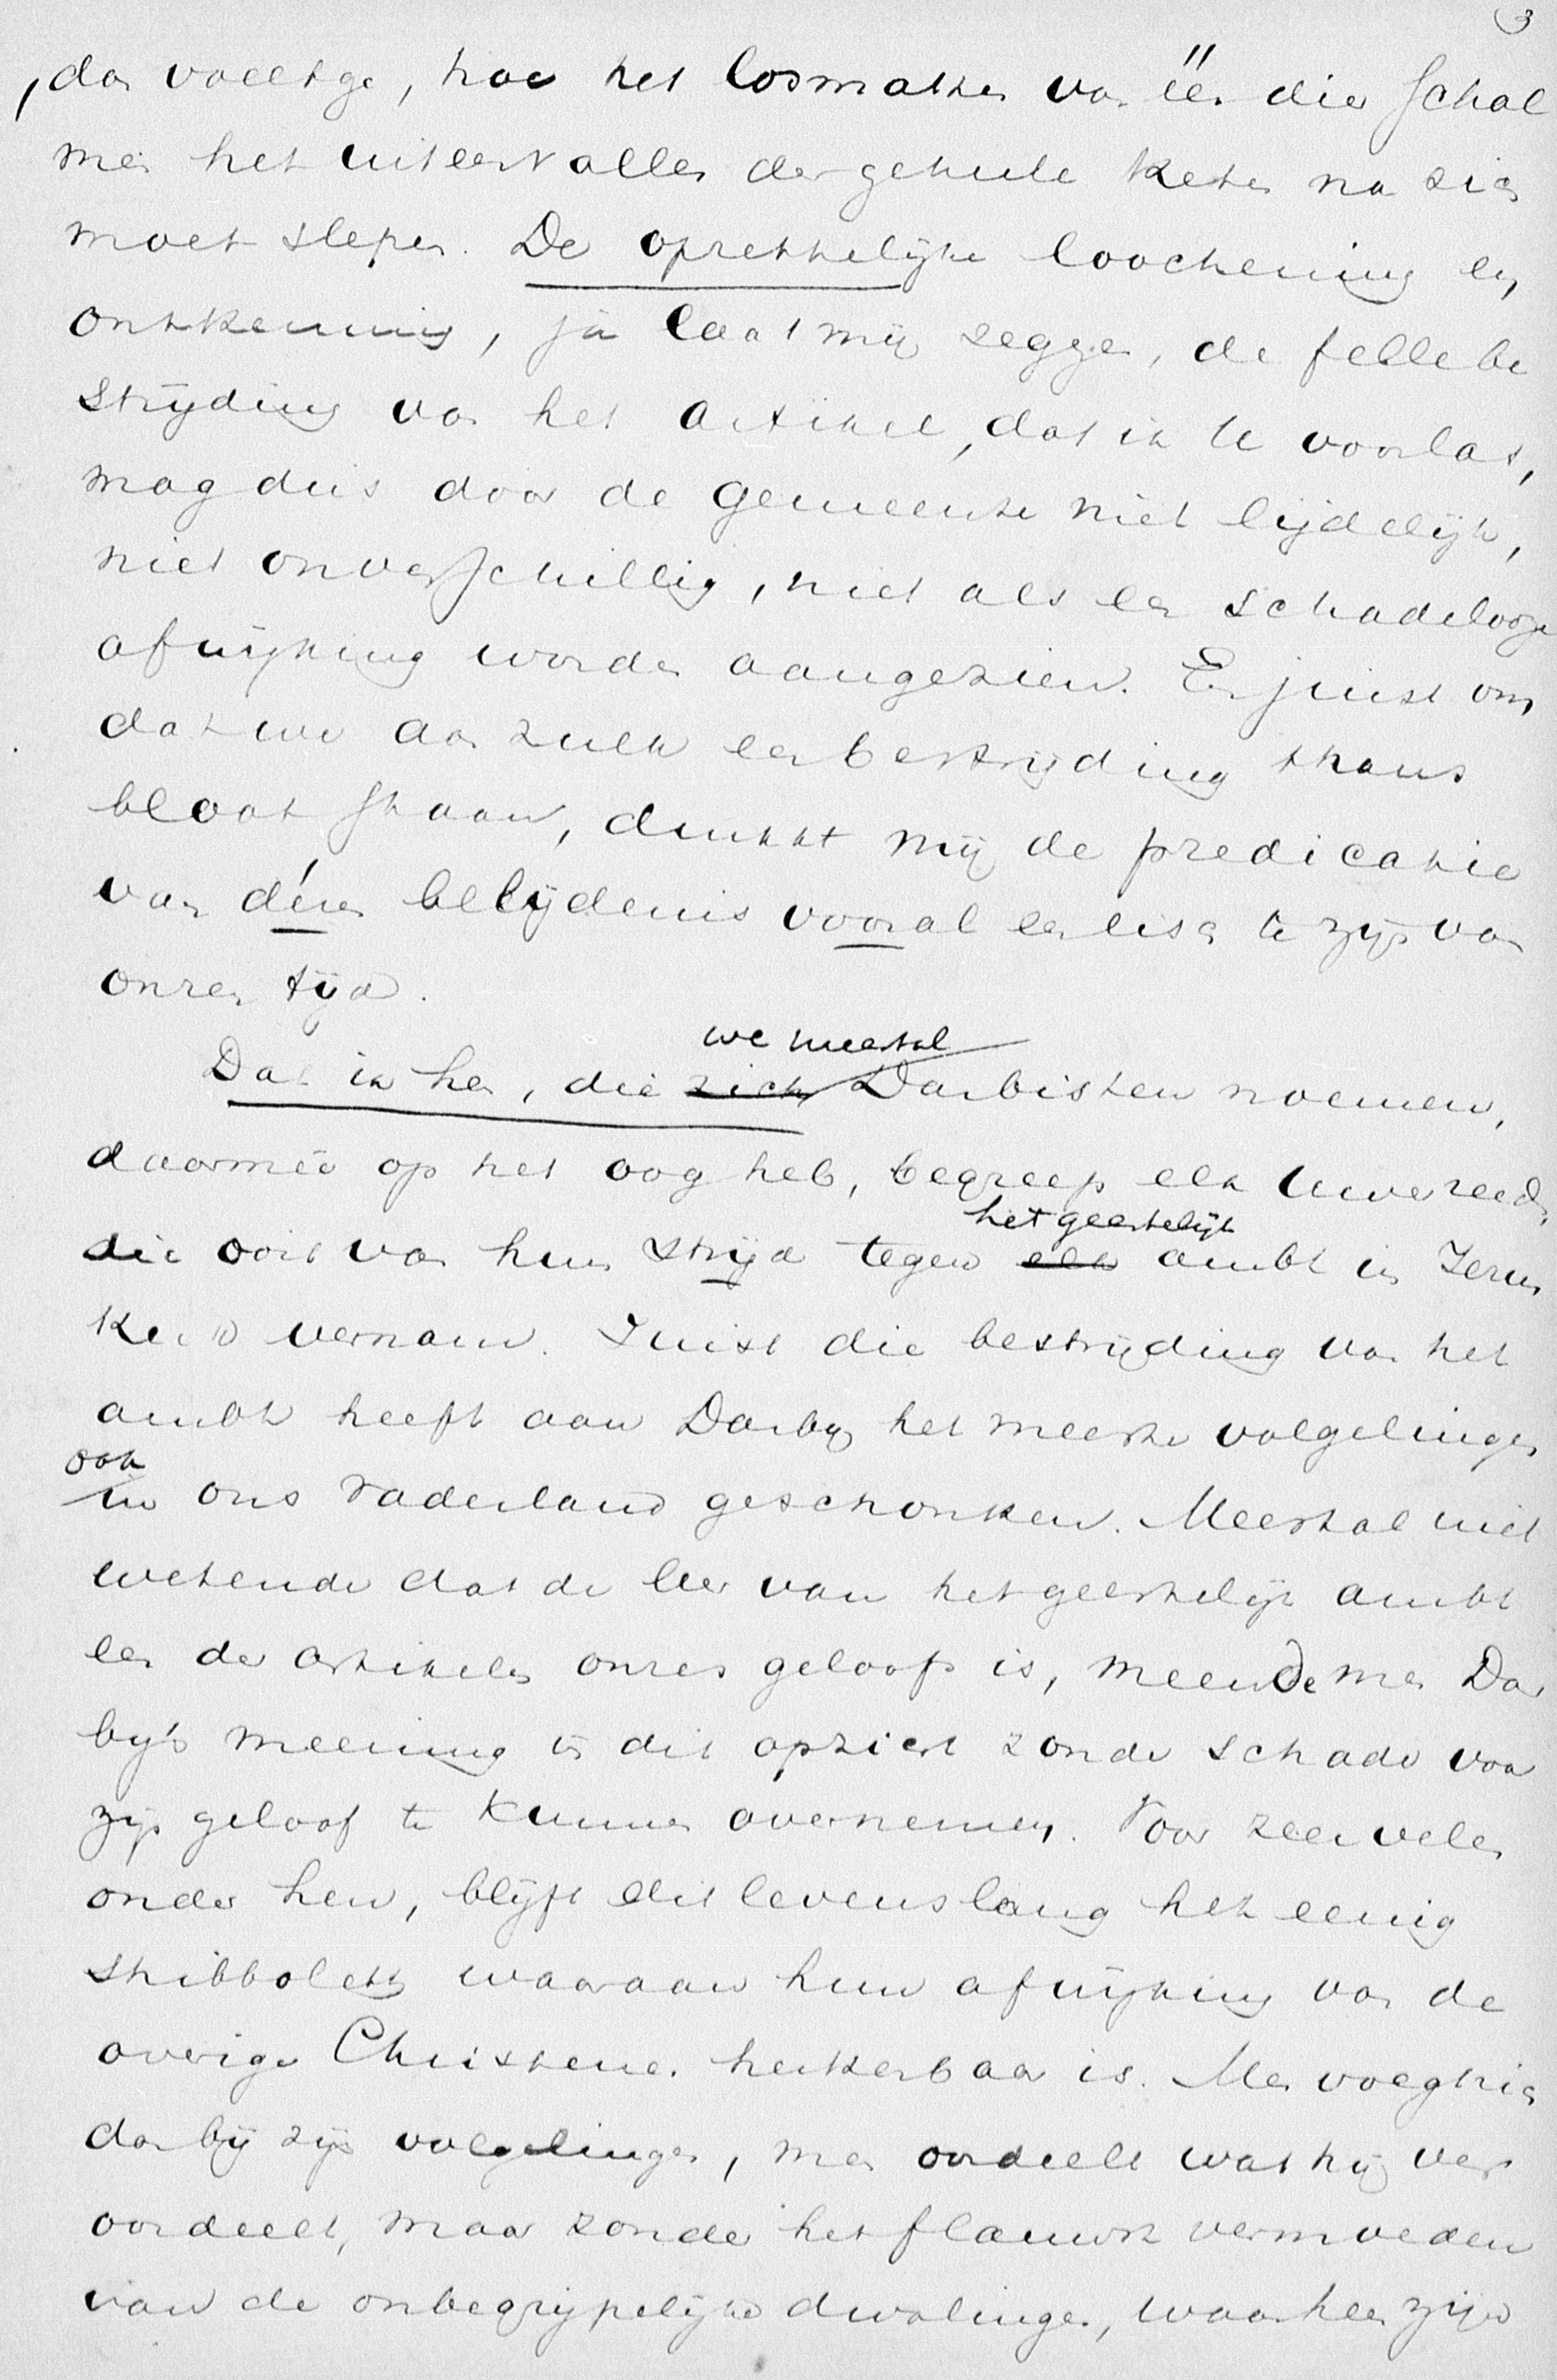 3
, dan voelt ge, hoe het losmaken van één dier schal
men het uiteenvallen der geheele keten na zich
moet slepen. De oprechtelijke loochening en
ontkenning, ja laat mij zeggen, de felle be
strijding van het artikel, dat ik U voorlas,
mag dus door de gemeente niet lijdelijk,
niet onverschillig, niet als een schadelooze
afwijking worden aangezien. En juist om
dat we aan zulk een bestrijding thans
bloot staan, dunkt mij de predicatie
van díen belijdenis vooral een eisch te zijn van
onzen tijd.
we meestal
Dat ik hen, die zich Darbisten noemen,
daarmeê op het oog heb, begreep elk Uwer reeds,
het geestelijk
die ooit van hun strijd tegen elk ambt in Jezus
Kerk vernam. Juist die bestrijding van het
ambt heeft aan Darby het meeste volgelingen
ook
in ons Vaderland geschonken. Meestal niet
wetende dat de leer van het geestelijk ambt
een der artikelen onzes geloofs is, meende men Dar
by's meening in dit opzicht zonder schade voor
zijn geloof te kunnen overnemen. Voor zeer velen
onder hen, blijft dit levenslang het eenig
shibboleth waaraan hun afwijking van de
overige Christenen herkenbaar is. Men voegt zich
dan bij zijn volgelingen, men oordeelt wat hij ver
oordeelt, maar zonder het flauwst vermoeden
van de onbegrijpelijke dwalingen, waarheen zijn